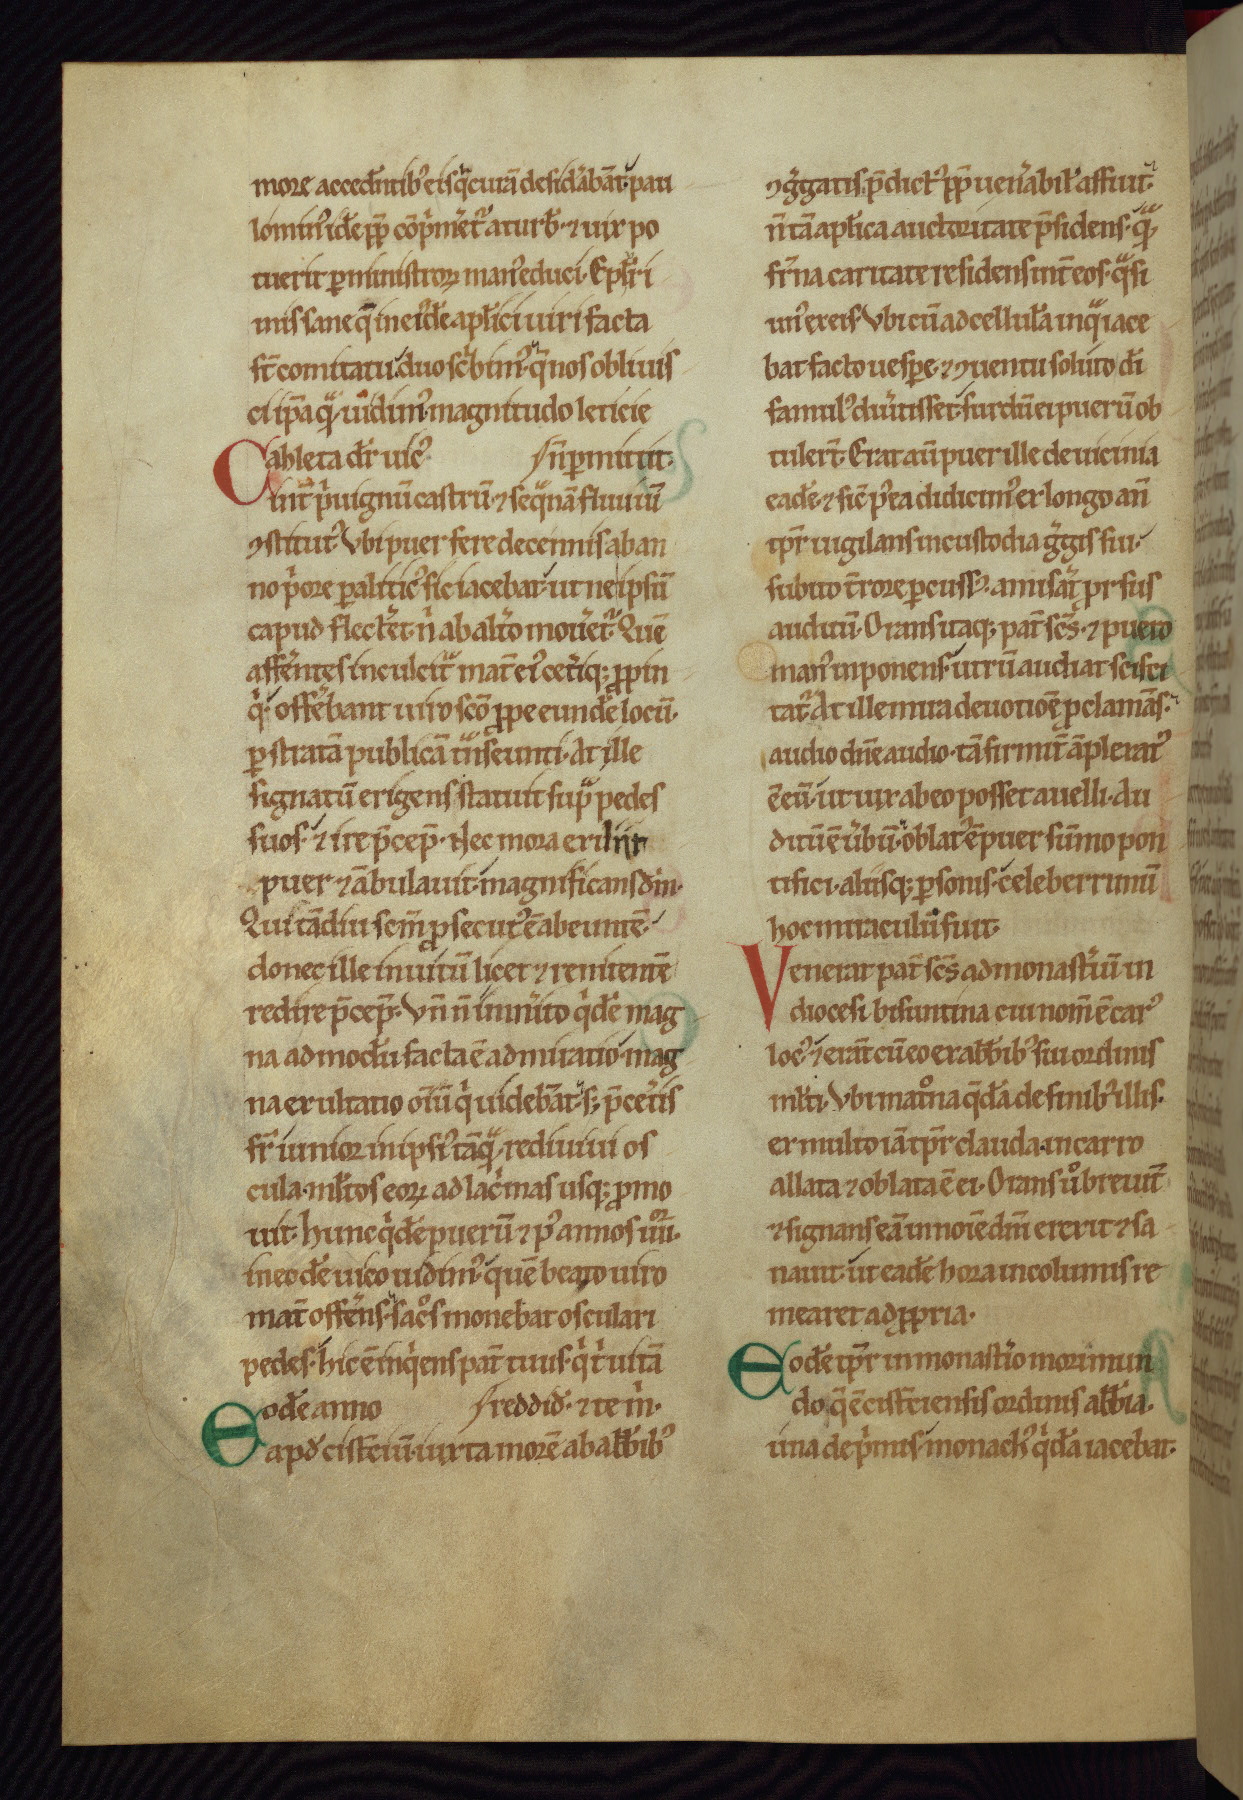 more acceđntib᷒ eisq̇ curā desid̾abāt. pau
lomin᷒ idē p̄p̄ cōp̾m̾et̾᷑ a turb̾. ⁊ uix po
tuerit p̱ ministroꝝ man᷒ educi. Ep̄s t̾i
mis sane q̄ in eid̾e ap̄lici uiri facta
s̄t comitatu. duo sc̾bim᷒. q̾ nos obliuis
ci ip̄a qͣ uidim᷒ magnitudo leticie
Cahleta d̄r uic᷒ s̄ n̄ p̱mittit.
int̾ p̾uignū castrū. ⁊ seqͣnā fluuiū
ꝯstitut᷒. Vbi puer fere decennis ab an
no p̾ore p̱alitic᷒ sic iacebat. ut ne ipsū
capud flect̾et. n̾ ab alt̾o mou̾et᷑. Quē
aff̾entes in culcitͣ mat̄ ei᷒ cet̾iq; ꝓpin
q̾. off̾ebant uiro scō ꝓpe eundē locū.
p̱ stratā publicā tͣnseunti. At ille
signatū erigens statuit supͣ pedes
suos. ⁊ ire p̄cep̄. Nec mora exiliit
puer ⁊ ābulauit. magnificans dm̄.
Qui tādiu scm̄ ꝓsecut᷒ ē abeuntē.
donec ille inuitū licet ⁊ renitentē
redire p̄cep̄. Vn̄ n̄ inm̾ito q̾dē mag
na admodū facta ē admiratio. mag
na exultatio om̄iū q̾ uidebāt. s; p̄ cet̾is
fr̄ iunior in ipsi᷒ tāqͣ rediuiui os
cula. ml̾tos eoꝝ ad lac̾mas usq; ꝓmo
uit. hunc q̾dē puerū ⁊ p᷒ annos iiii.
in eodē uico uidim᷒. quē beato uiro
mat̄ off̾ens. sac̊s monebat osculari
pedes. hic ē inq̾ens pat̄ tuus. q̾ t̾ uitā
Eodē anno s reddid̾. ⁊ te m̾.
apd̾ cist̾ciū. iuxta morē ab abb̄ib᷒
ꝯg̾gatis. p̄dict᷒ p̄p̄ uen̾abil᷒ affuit.
n̄ tā ap̄lica auctoritate p̄sidens. qͣ
fr̾na caritate residens int̾ eos. qͣsi
un᷒ ex eis. Vbi cū ad cellulā in qͣ iace
bat facto uesp̱e. ⁊ ꝯuentu soluto di
famul᷒ diu̾tisset. surdū ei puerū ob
tulert̄. Erat aū puer ille de uicinia
eadē. ⁊ sic p᷒ea didicim᷒ ex longo an̄
tp̄r uigilans in custodia g̾gis sui.
subito t̾rore p̱cuss᷒. amis̾at prsus
auditū. Orans itaq; pat̄ scs̄. ⁊ puero
man᷒ inponens. utrū audiat scisci
tat᷑. At ille mira deuotiōe ꝓclamās.
audio dn̄e audio. tā firmit̾ āplexat᷒
ē eū. ut uix ab eo posset auelli. Au
ditū ē ūbū. oblat᷒ ē puer sūmo pon
tifici. aliisq; p̱sonis. celeberrimū
hoc miraculū fuit.
Venerat pat̄ scs̄ ad monast̾iū in
diocesi bisuntina cui nom̄ ē car᷒
loc᷒. ⁊ erāt cū eo ex abb̄ib᷒ sui ordinis
ml̾ti. Vbi mat̊na q̾dā de finib᷒ illis.
ex multo iā tp̄r clauda. in carro
allata ⁊ oblata ē ei. Orans u̾ breuit̾
⁊ signans eā in noīe dn̄i erexit ⁊ sa
nauit. ut eadē hora incolumis re
mearet ad ꝓpria.
Eodē tp̄r in monast̾io morimun
do. q̄ ē cist̾ciensis ordinis abb̄ia.
una de p̾mis. monach᷒ q̾dā iacebat.